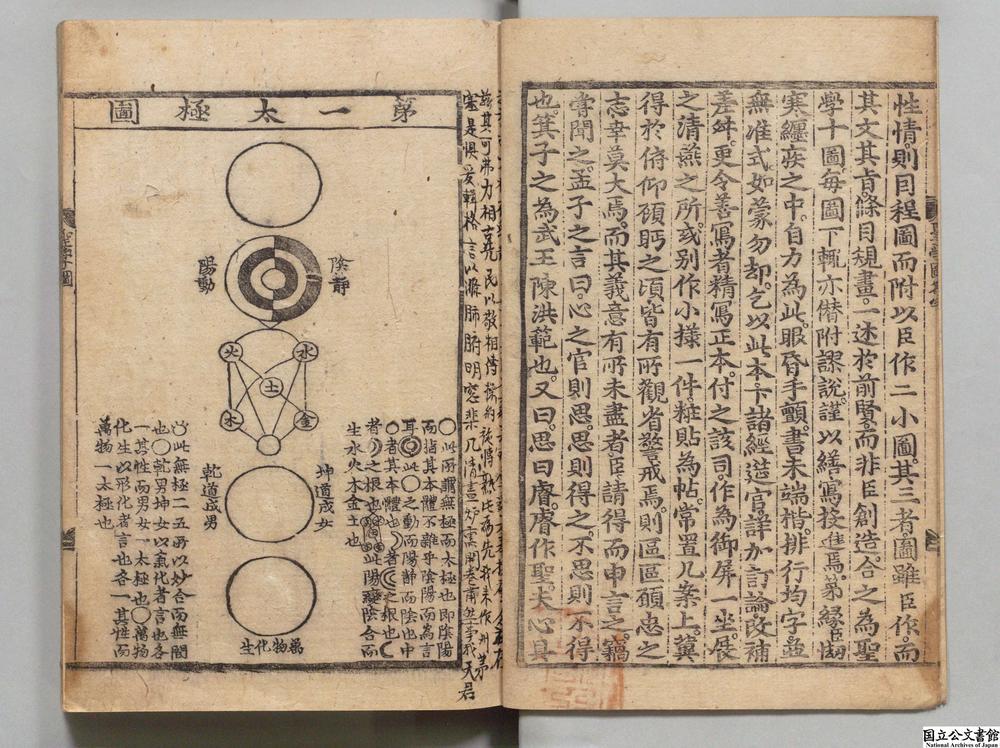 性情則因程圖而附以臣作二小圖其三者圖雖臣作而
其文其旨條目規畫一述於前賢而非臣創造合之為聖
學十圖每圖下輒亦僭附謬說謹以繕寫投進焉第緣臣㤼
寒纏疾之中自力為此眼昏手顫書未端楷排行均字並
無准式如蒙勿却乞以此本下諸經筵官詳加訂論改補
差舛更令善寫者精寫正本付之該司作為御屏一坐展
之清燕之所或別作小樣一件粧貼為帖常置几案上冀
得於俯仰顧眄之頃皆有所觀省警戒焉則區區願忠之
志幸莫大焉而其義意有所未盡者臣請得而申言之竊
嘗聞之孟子之言曰心之官則思思則得之不思則不得
也箕子之為武王陳洪範也又曰思曰睿睿作聖夫心具
第一太極圖
陰靜
陽動
火
水
土
木
金
坤道成女
乾道成男
萬物化生
○此所謂無極而太極也即陰陽
而指其本體不雜乎陰陽而為言
耳此○之動而陽靜而陰也中
○者其本體也
者之根也此陽變陰合而
生水火木金土也
此無極二五所以妙合而無間
也○乾男坤女以氣化者言也各
一其性而男女一太極也○萬物
化生以形化者言也各一其性而
萬物一太極也
聖學十圖
國立公文書館
National Archives of Japan